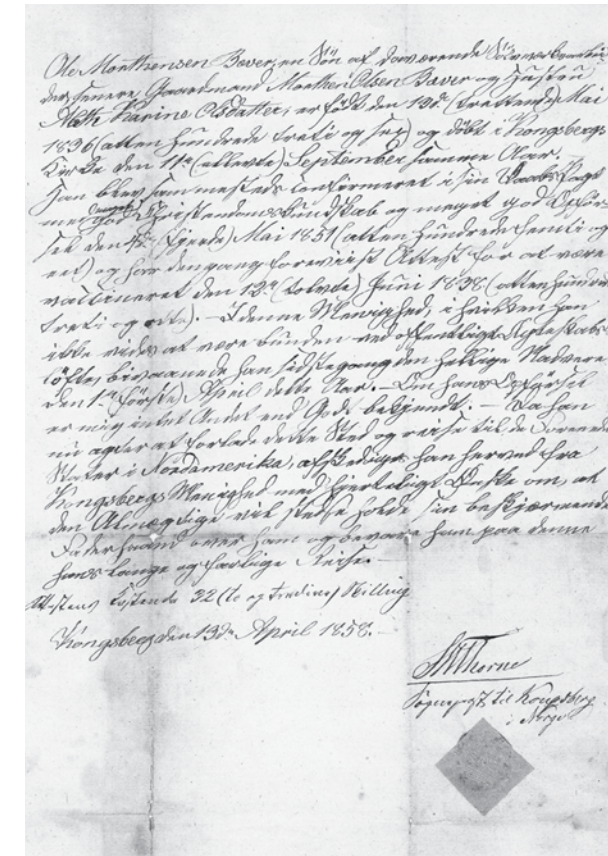 Ole Morthensen Bæver, en Søn af daværende Sølvverksarbei-
der, senere Gaardmand Morthen Olsen Bæver og Hustru
Meth Karine Olsdatter, er født den 13de (trettende) Mai
1836 (atten hundrede treti og sex) og døbt i Kongsbergs
Kirke den 11te (ellevte) September samme Aar.
Han blev sammesteds confirmeret i sin Daabs Pagt
med meget god Christendomskundskab og meget god Opfør-
sel den 4de (fjerde) Mai 1851 (atten hundrede femti og
eet) og har dengang foreviist Attest for at være
vaccineret den 12te (tolvte) Juni 1838 (atten hundrede
treti og otte). – I denne Menighed, i hvilken han
ikke vides at være bunden ved offentligt Ægteskabs-
løfte, bivaanede han sidstegang den hellige Nadvere
den 1ste (første) April dette Aar. – Om hans Opførsel
er mig intet Andet end Godt bekjendt. – Da han
nu agter at forlade dette Sted og reise til de Forenede
Stater i Nordamerika, afskediges han herved fra
Kongsbergs Menighed med hjerteligt Ønske om, at
den Almægtige vil stedse holde sin beskjærmende
Faderhaand over ham og bevare ham paa denne
hans lange og farlige Reise. –
Attestens Kostende 32 (to og tredive) Skilling
Kongsberg den 13de April 1858. –
Thorne
Sogneprest til Kongsberg
i Norge